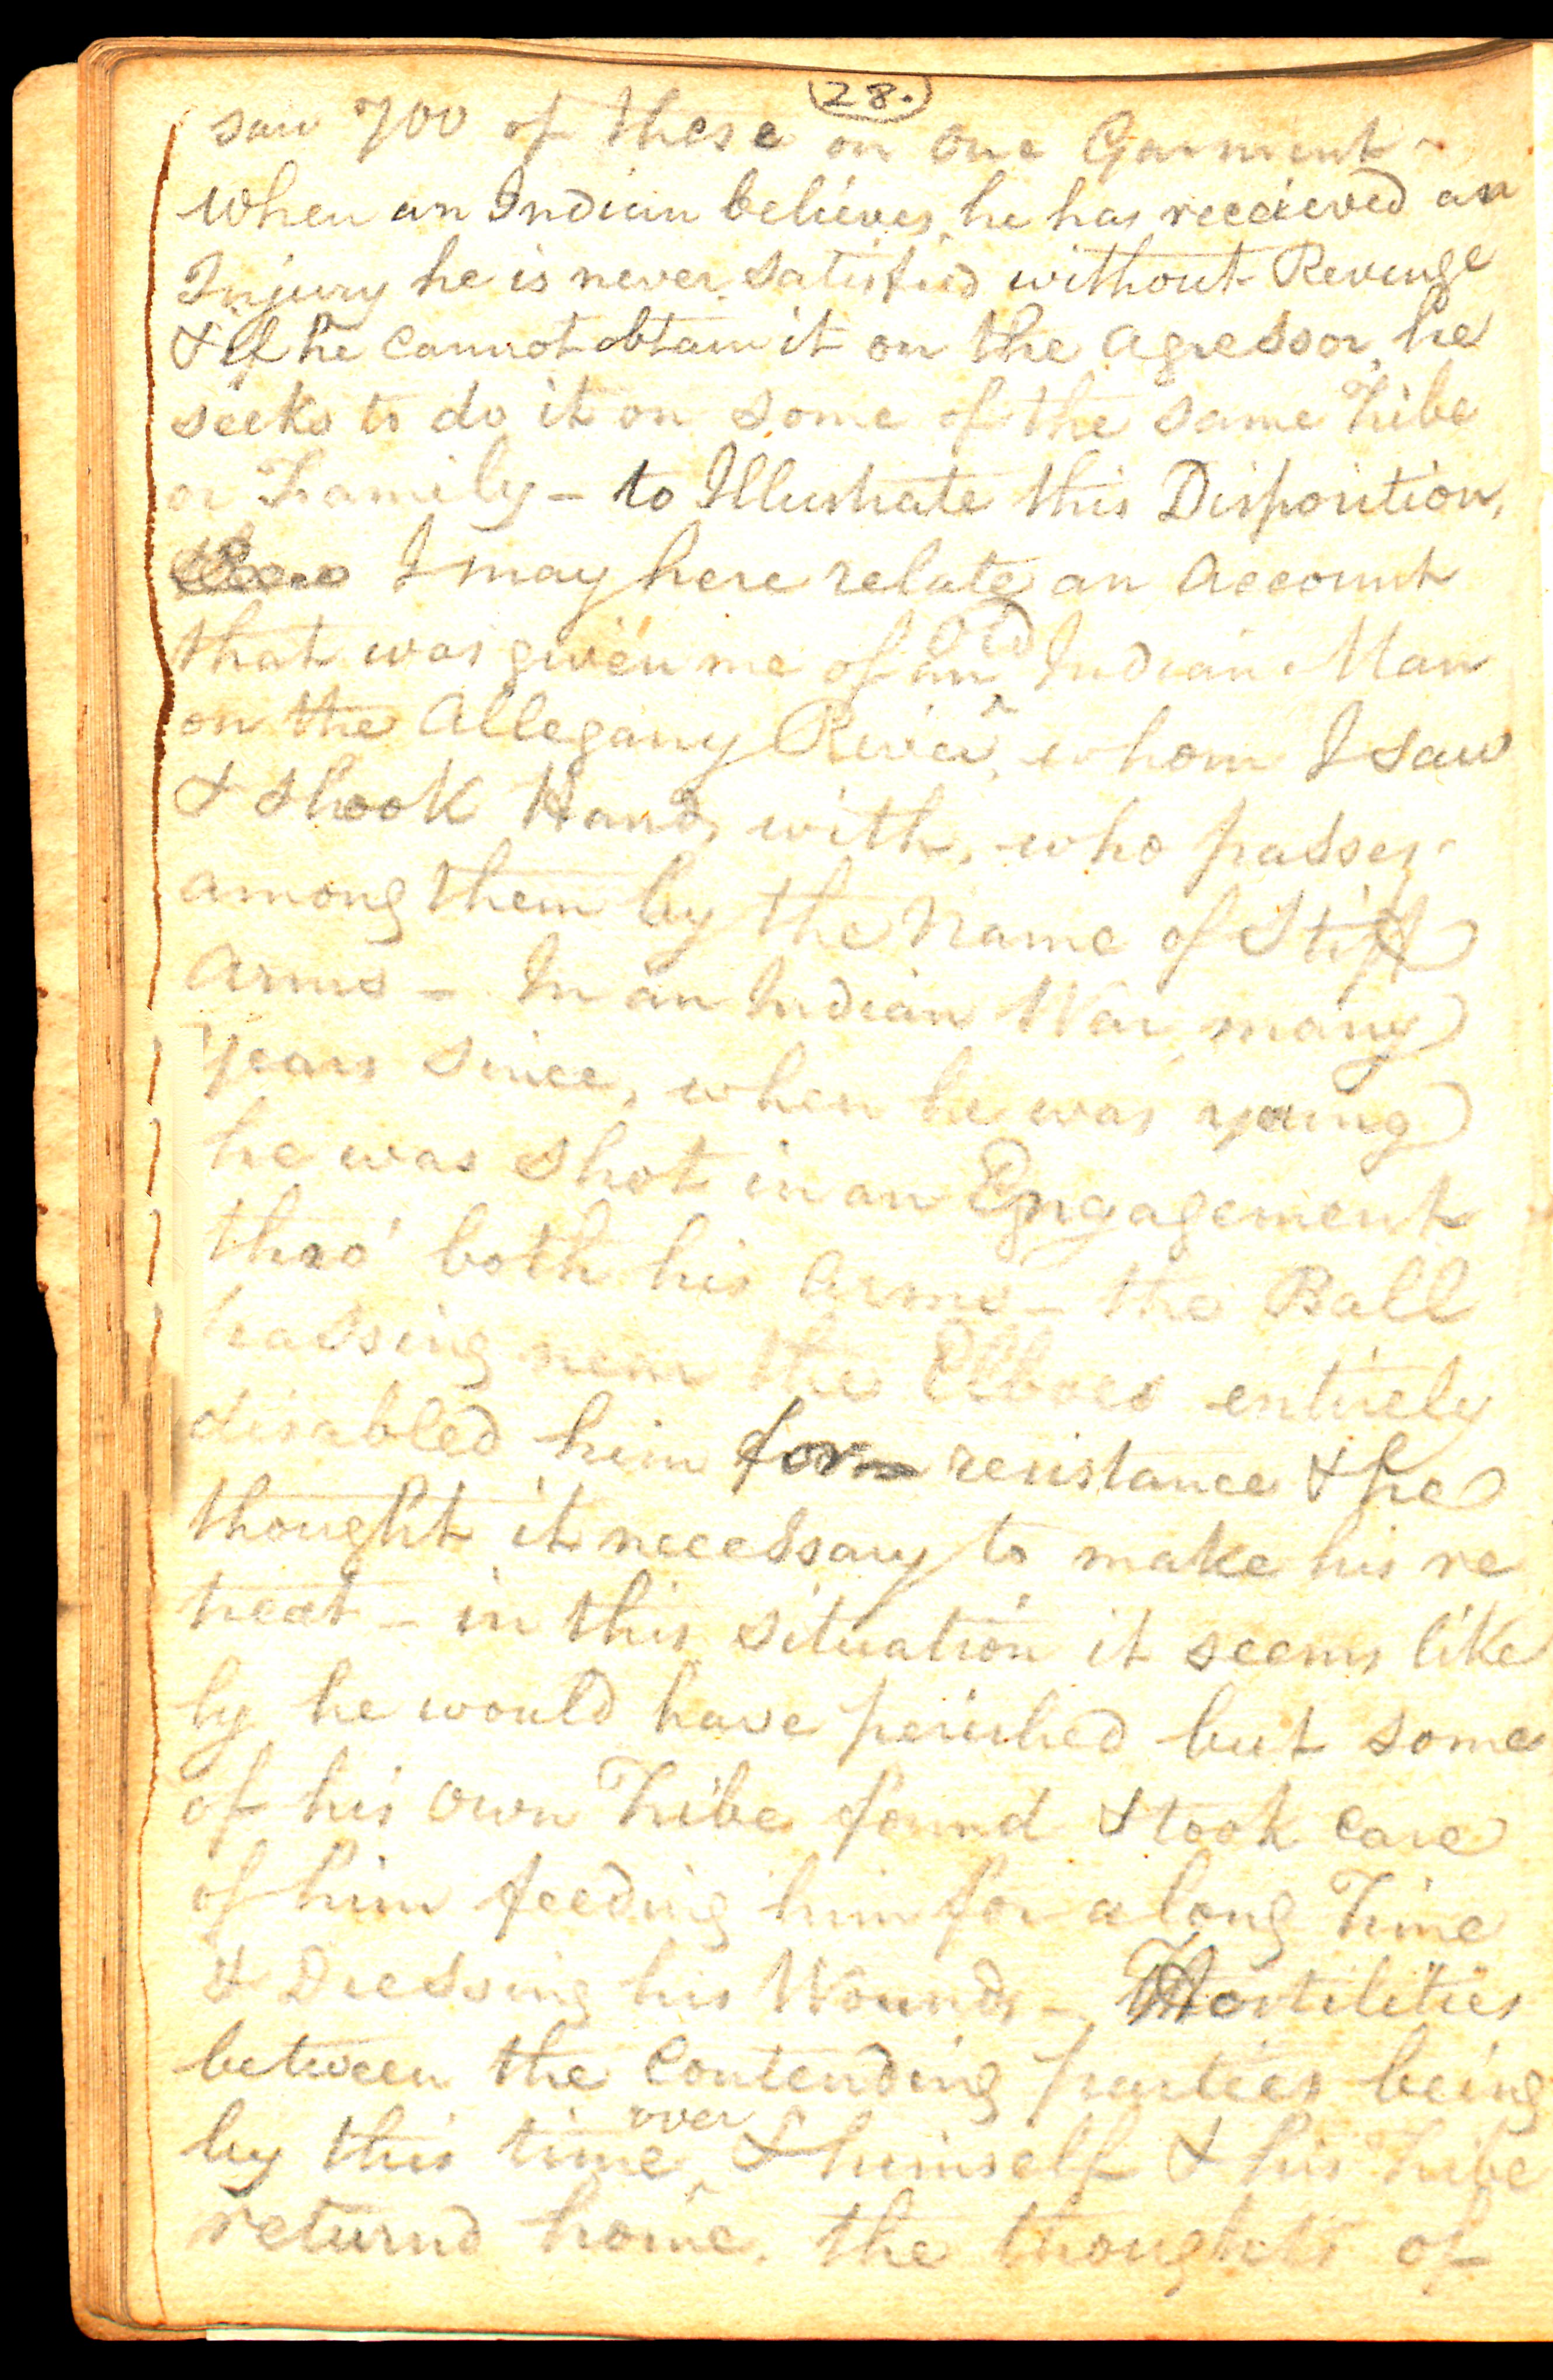 (28.)
saw 700 of these on one Garment -
when an Indian believes he has receieved an
Injury he is never satisfied without Revenge
& if he cannot obtain it on the agressor, he
seeks to do it on some of the same Tribe
or Family - to Illustrate this Disposition,
I may here relate an account
that was given me of an old Indian Man
on the Allegany River, whom I saw
& shook Hands with, who passes
among them by the Name of Stiff
Arms - In an Indian War, many
Years since, when he was young
he was shot in an Engagement
thro' both his Arms - the Ball
passing near the Elboes entirely
disabled him for resistance & he
thought it necessary to make his re
treat - in this situation it seems like
ly he would have perished but some
of his own Tribe found & took care
of him feeding him for a long Time
& Dressing his Wounds - Hostilities
between the Contending parties being
by this time over & himself & his Tribe
returnd home. the thoughts of